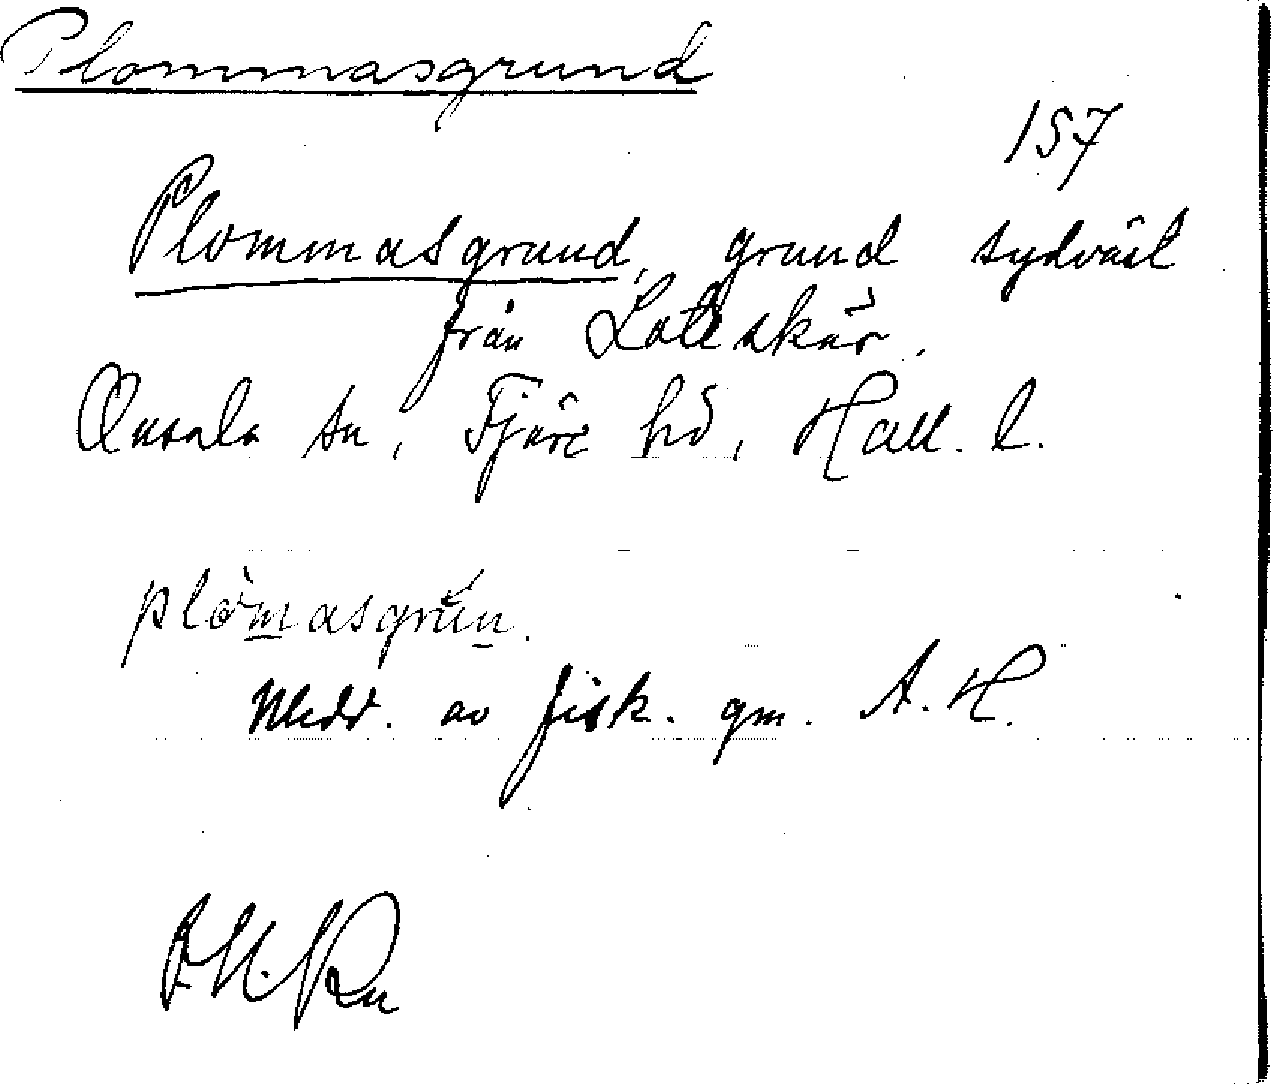 Plommasgrund
157
Plommasgrund, grund sydväst
från Lotsskär.
Onsala sn, Fjäre hd, Hall. l.
plòmasgrun.
Medd. av fisk. gm. A. H.